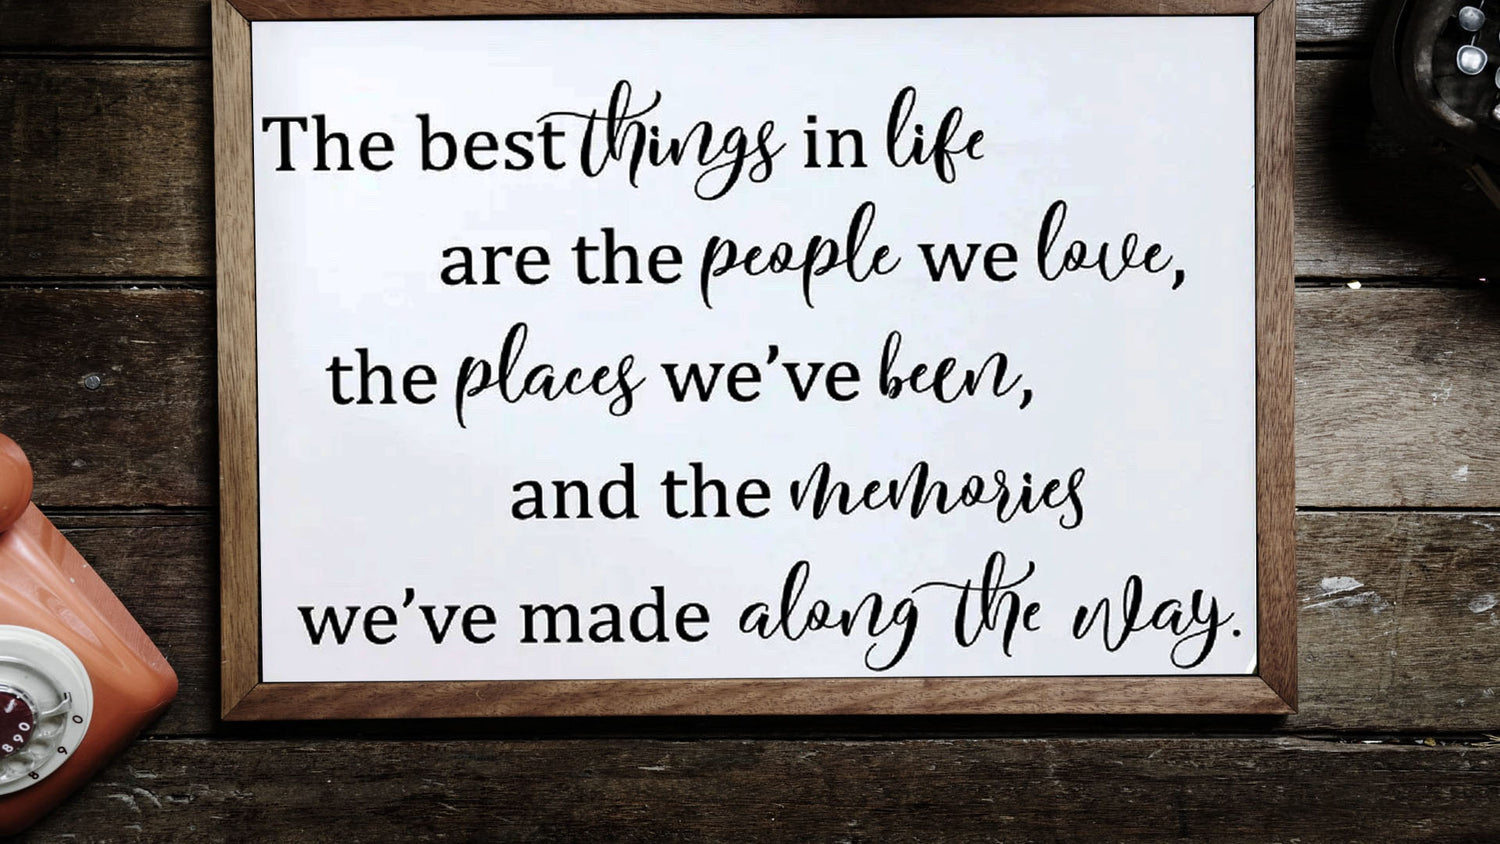 The best things in life
are the people we love,
the places we’ve been,
and the memories
we’ve made along the way.
7
0
9
8
890